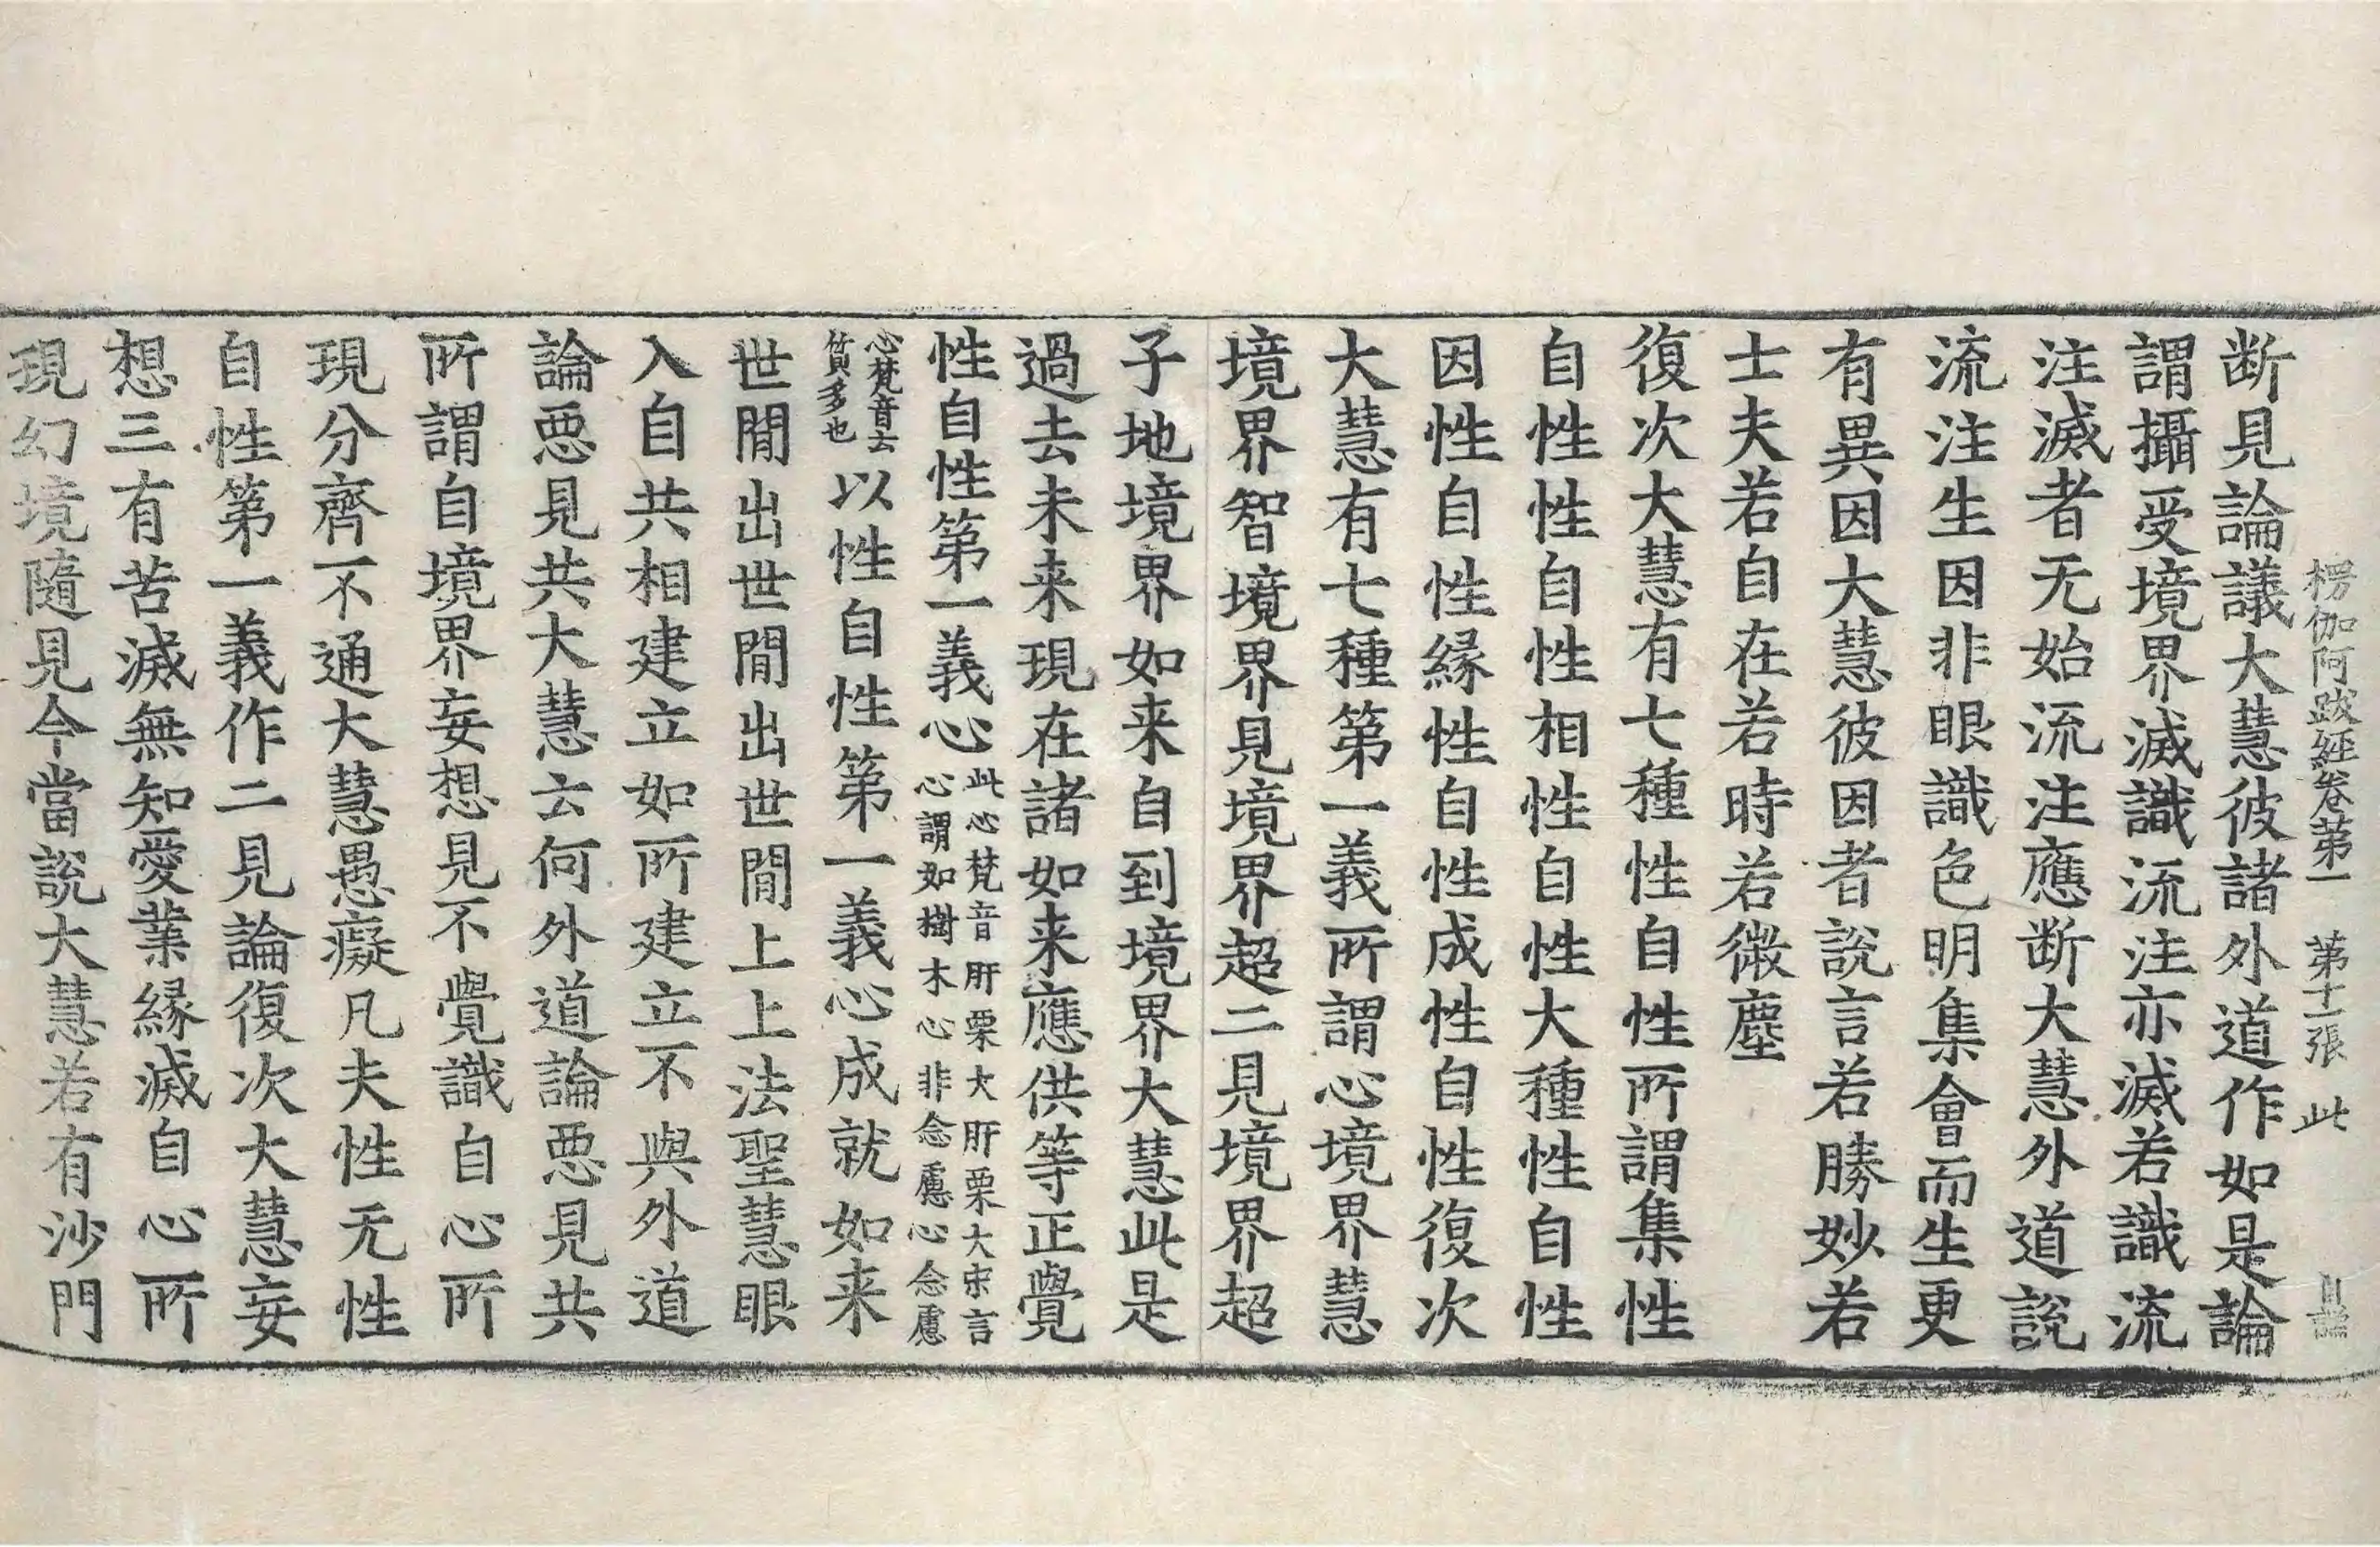 楞伽阿跋經卷第一 第十一張 此
断見論議大慧彼諸外道作如是論
謂攝受境界滅識流注亦滅若識流
注滅者无始流注應断大慧外道説
流注生因非眼識色明集會而生更
有異因大慧彼因者説言若勝妙若
士夫若自在若時若微塵
復次大慧有七種性自性所謂集性
自性性自性相性自性大種性自性
因性自性緣性自性成性自性復次
大慧有七種第一義所謂心境界慧
境界智境界見境界超二見境界超
子地境界如来自到境界大慧此是
過去未来現在諸如来應供等正覺
性自性第一義心此心梵音肝栗大肝栗大宋言
心謂如樹木心非念慮心念慮
心梵音云
質多也以性自性第一義心成就如来
世間出世間出世間上上法聖慧眼
入自共相建立如所建立不與外道
論惡見共大慧云何外道論惡見共
所謂自境界妄想見不覺識自心所
現分齊不通大慧愚癡凡夫性无性
自性第一義作二見論復次大慧妄
想三有苦滅無知愛業緣滅自心所
現幻境隨見今當説大慧若有沙門